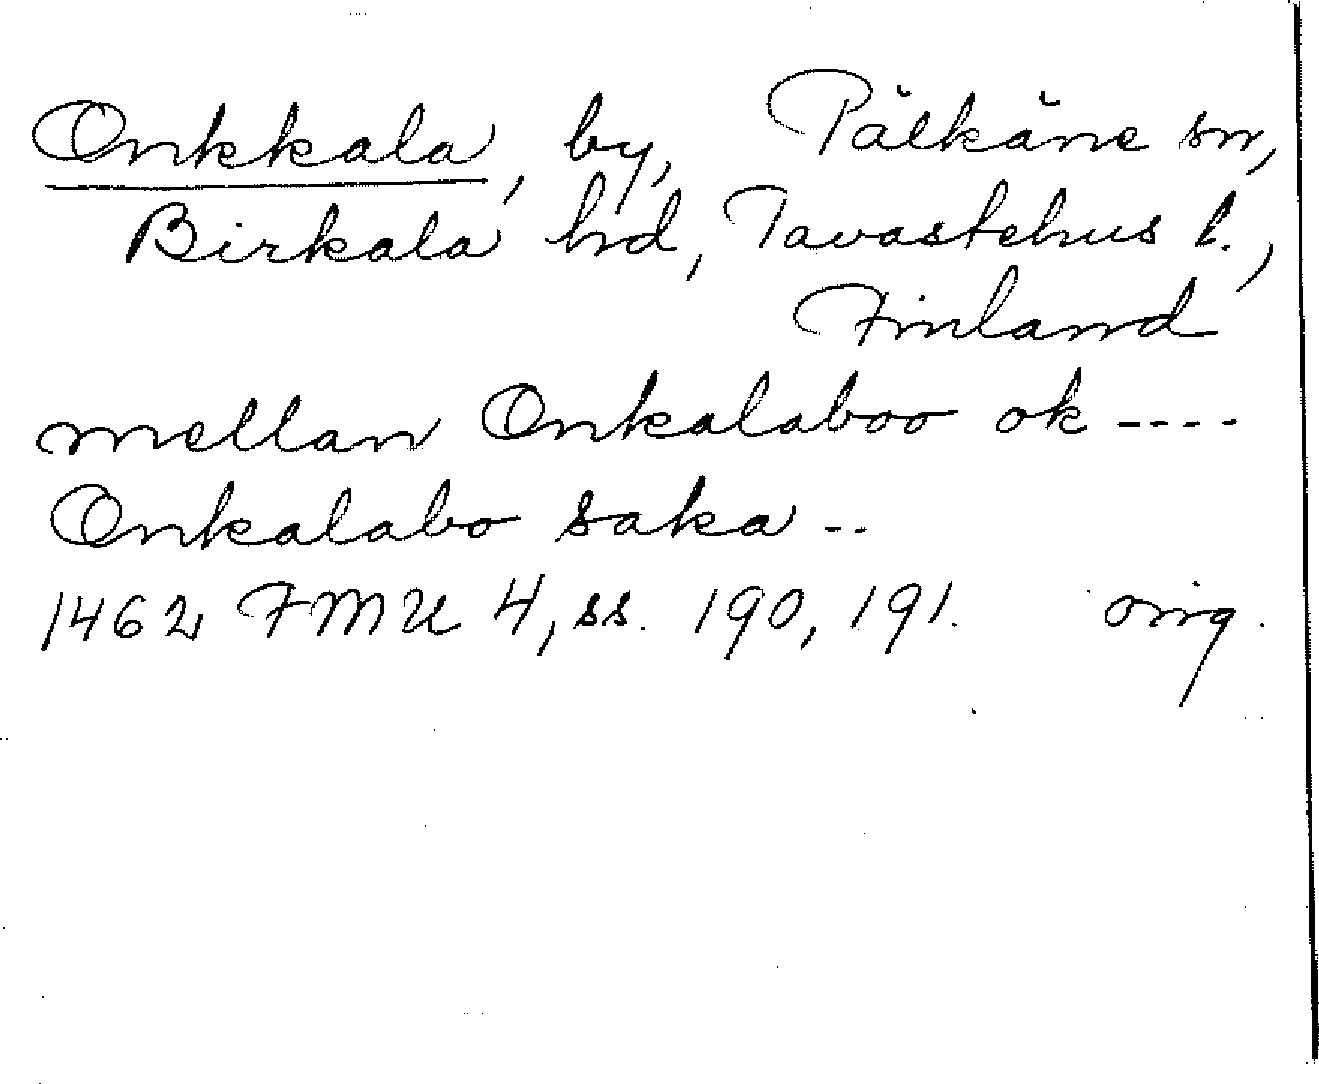 Onkkala, by, Pälkäne sn,
Birkala hd, Tavastehus l.,
Finland
mellan Onkalaboo ok ----
Onkalabo saka --
1462 FMU 4, ss. 190, 191. orig.